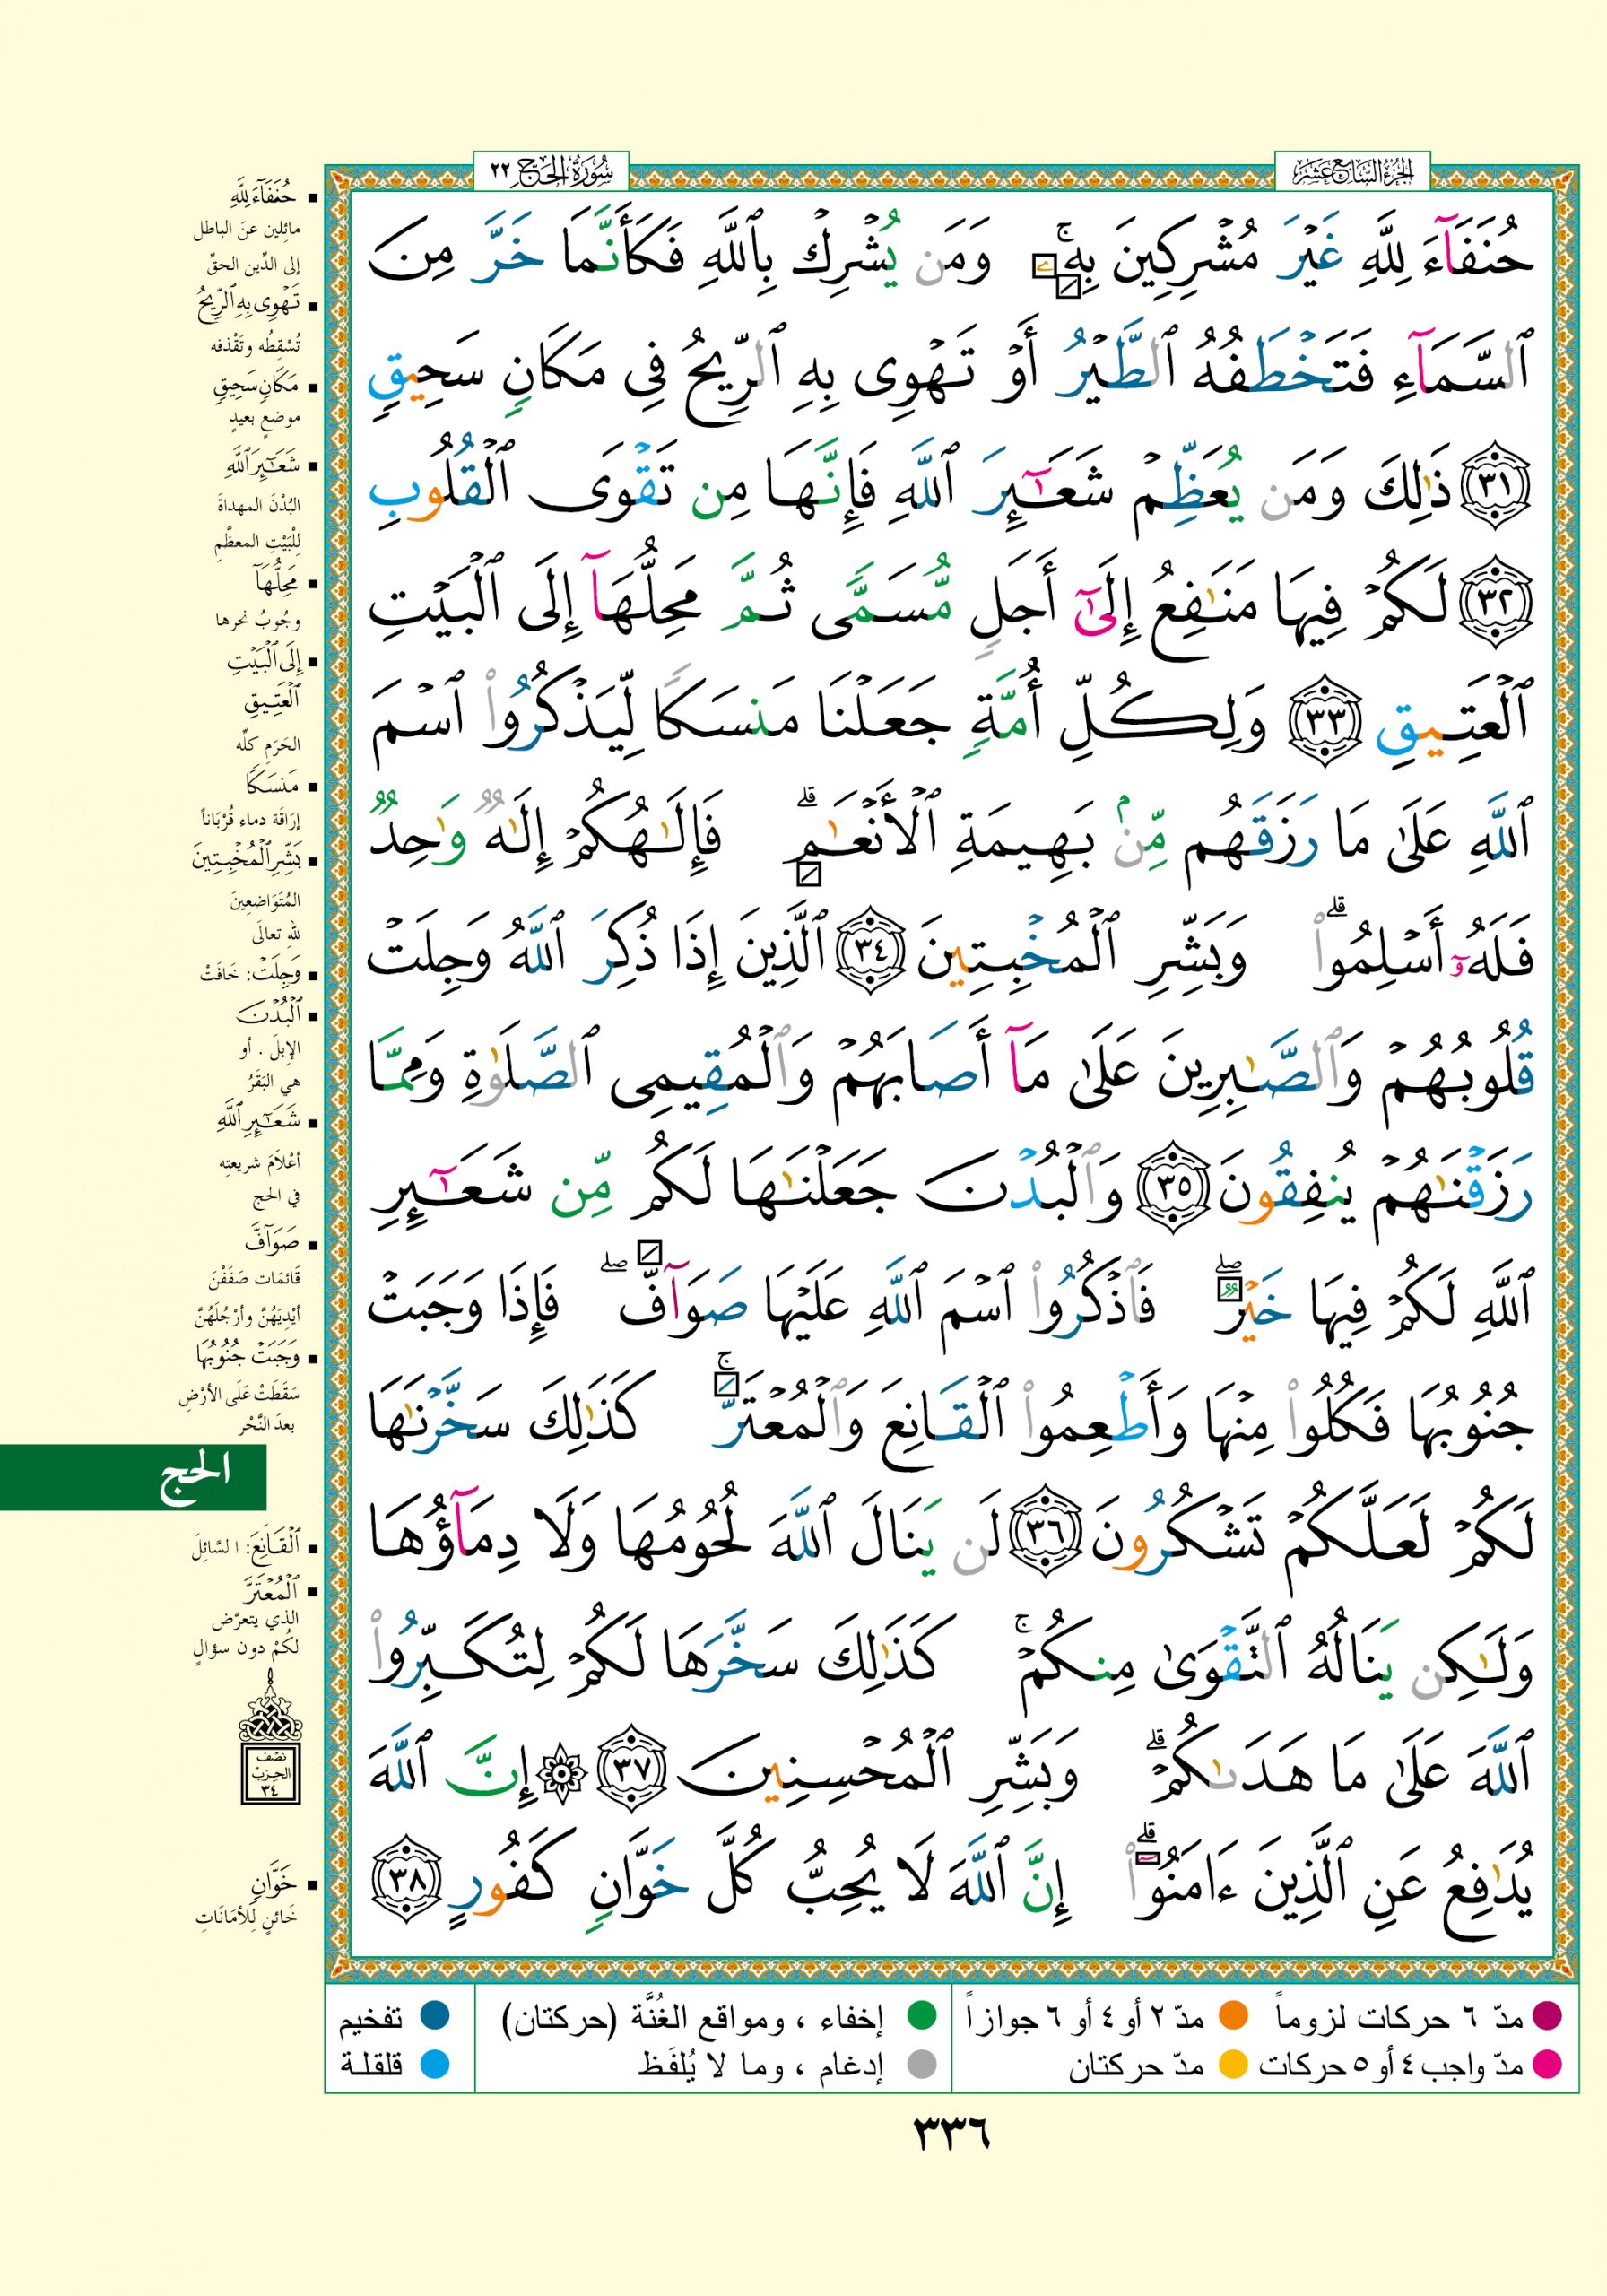 الجزء السابع عشر
سورة الحج ٢٢
حُنَفَآءَ لِلَّهِ غَيْرَ مُشْرِكِينَ بِهِۦۚ وَمَن يُشْرِكْ بِٱللَّهِ فَكَأَنَّمَا خَرَّ مِنَ
ٱلسَّمَآءِ فَتَخْطَفُهُ ٱلطَّيْرُ أَوْ تَهْوِى بِهِ ٱلرِّيحُ فِى مَكَانٍ سَحِيقٍ
٣١ ذَٰلِكَ وَمَن يُعَظِّمْ شَعَٰٓئِرَ ٱللَّهِ فَإِنَّهَا مِن تَقْوَى ٱلْقُلُوبِ
٣٢ لَكُمْ فِيهَا مَنَٰفِعُ إِلَىٰٓ أَجَلٍ مُّسَمًّى ثُمَّ مَحِلُّهَآ إِلَى ٱلْبَيْتِ
ٱلْعَتِيقِ ٣٣ وَلِكُلِّ أُمَّةٍ جَعَلْنَا مَنسَكًا لِّيَذْكُرُوا۟ ٱسْمَ
ٱللَّهِ عَلَىٰ مَا رَزَقَهُم مِّنۢ بَهِيمَةِ ٱلْأَنْعَٰمِۗ فَإِلَٰهُكُمْ إِلَٰهٌ وَٰحِدٌ
فَلَهُۥٓ أَسْلِمُوا۟ۗ وَبَشِّرِ ٱلْمُخْبِتِينَ ٣٤ ٱلَّذِينَ إِذَا ذُكِرَ ٱللَّهُ وَجِلَتْ
قُلُوبُهُمْ وَٱلصَّٰبِرِينَ عَلَىٰ مَآ أَصَابَهُمْ وَٱلْمُقِيمِى ٱلصَّلَوٰةِ وَمِمَّا
رَزَقْنَٰهُمْ يُنفِقُونَ ٣٥ وَٱلْبُدْنَ جَعَلْنَٰهَا لَكُم مِّن شَعَٰٓئِرِ
ٱللَّهِ لَكُمْ فِيهَا خَيْرٌۖ فَٱذْكُرُوا۟ ٱسْمَ ٱللَّهِ عَلَيْهَا صَوَآفَّۖ فَإِذَا وَجَبَتْ
جُنُوبُهَا فَكُلُوا۟ مِنْهَا وَأَطْعِمُوا۟ ٱلْقَانِعَ وَٱلْمُعْتَرَّۚ كَذَٰلِكَ سَخَّرْنَٰهَا
لَكُمْ لَعَلَّكُمْ تَشْكُرُونَ ٣٦ لَن يَنَالَ ٱللَّهَ لُحُومُهَا وَلَا دِمَآؤُهَا
وَلَٰكِن يَنَالُهُ ٱلتَّقْوَىٰ مِنكُمْۚ كَذَٰلِكَ سَخَّرَهَا لَكُمْ لِتُكَبِّرُوا۟
ٱللَّهَ عَلَىٰ مَا هَدَىٰكُمْۗ وَبَشِّرِ ٱلْمُحْسِنِينَ ٣٧ ۞ إِنَّ ٱللَّهَ
يُدَٰفِعُ عَنِ ٱلَّذِينَ ءَامَنُوٓا۟ۗ إِنَّ ٱللَّهَ لَا يُحِبُّ كُلَّ خَوَّانٍ كَفُورٍ ٣٨
حُنَفَآءَ لِلَّهِ
مائِلين عنَ الباطل
إلى الدِّين الحقِّ
تَهْوِى بِهِ ٱلرِّيحُ
تُسْقِطُه وتَقْذفه
مَكَانٍ سَحِيقٍ
موضعٍ بعيدٍ
شَعَٰٓئِرَ ٱللَّهِ
البُدْنَ المهداةَ
لِلْبَيْتِ المعظَّمِ
مَحِلُّهَآ
وجُوبُ نحرها
إِلَى ٱلْبَيْتِ
ٱلْعَتِيقِ
الحَرَمِ كلِّه
مَنسَكًا
إرَاقَة دماء قُرْبَاناً
بَشِّرِ ٱلْمُخْبِتِينَ
المُتَوَاضعِينَ
للهِ تعالَى
وَجِلَتْ: خَافَتْ
ٱلْبُدْنَ
الإبلَ . أو
هي البَقَرُ
شَعَٰٓئِرِ ٱللَّهِ
أعْلاَمَ شريعتِه
في الحج
صَوَآفَّ
قَائمَات صَفَفْنَ
أيْدِيَهُنَّ وأرْجُلَهُنَّ
وَجَبَتْ جُنُوبُهَا
سَقَطَتْ عَلَى الأرْضِ
بعدَ النَّحْر
الحج
ٱلْقَانِعَ: السَّائلَ
ٱلْمُعْتَرَّ
الذي يتعرَّض
لكُمْ دون سؤالٍ
نصْف
الحِزبْ
٣٤
خَوَّانٍ
خَائنٍ لِلأمَانَاتِ
مدّ ٦ حركات لزوماً مدّ ٢ أو ٤ أو ٦ جوازاً إخفاء ، ومواقع الغُنَّة (حركتان) تفخيم
مدّ واجب ٤ أو ٥ حركات مدّ حركتان إدغام ، وما لا يُلفَظ قلقلة
٣٣٦